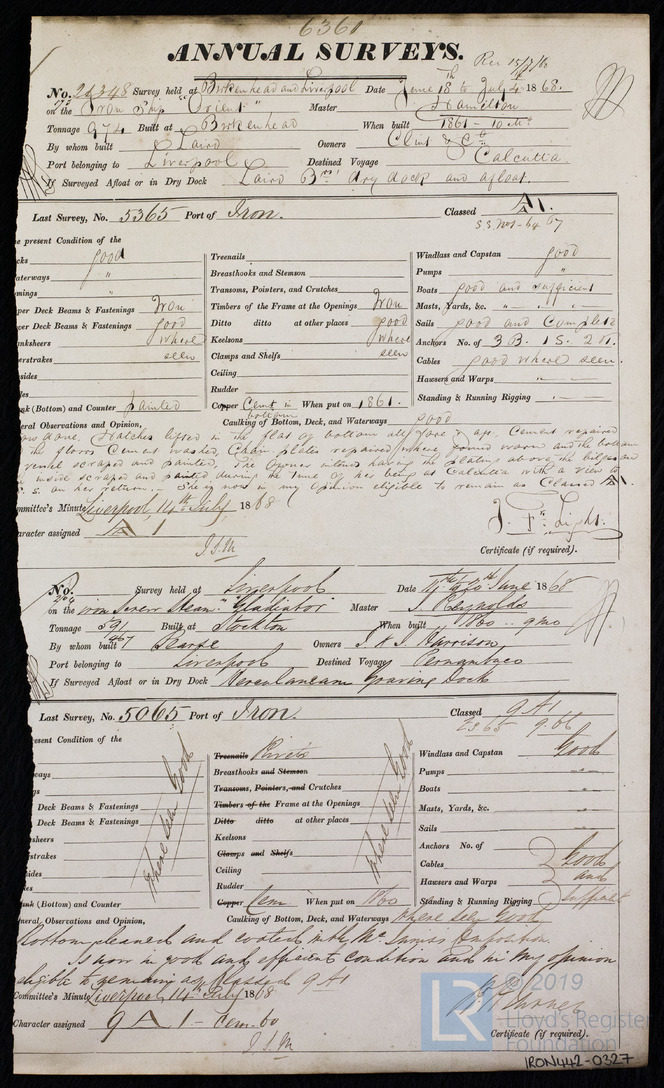 6361
ANNUAL SURVEYS. Rec 15/7/68
No. 24348 Survey held at Birkenhead and Liverpool Date June 18th to July 4th 1868.
on the Iron Ship "Orient" Master Hamilton
Tonnage 974 Built at Birkenhead When built 1861 - 10 Mo
By whom built Laird Owners Clint & Co
Port belonging to Liverpool Destined Voyage Calcutta
If Surveyed Afloat or in Dry Dock Laird Bros' dry dock and afloat.
Last Survey, No. 5365 Port of Iron. Classed A1.
S.S. No1-64 67
e present Condition of the
cks good
aterways "
mings "
per Deck Beams & Fastenings Iron
wer Deck Beams & Fastenings good
nksheers where
erstrakes seen
sides
es
nk (Bottom) and Counter painted
Treenails
Breasthooks and Stemson
Transoms, Pointers, and Crutches
Timbers of the Frame at the Openings Iron
Ditto ditto at other places good
Keelsons where
Clamps and Shelfs seen
Ceiling
Rudder
Copper Cemt in bottom When put on 1861.
Caulking of Bottom, Deck, and Waterways good
Windlass and Capstan good
Pumps "
Boats good and sufficient
Masts, Yards, &c. " - " - "
Sails good and Complete
Anchors No. of 3 B. 1 S. 2 K.
Cables good where seen.
Hawsers and Warps " -
Standing & Running Rigging " -
eral Observations and Opinion,
done, Hatches lifted in the flat of bottom all fore & aft. Cement repaired
the floors Cement washed, Chain plates repaired where found worn and the bottom
vessel scraped and painted, The Owner intends having the plating above the bilges on
inside scraped and painted during the time of her being at Calcutta with a view to
S. on her return. She is now in my Opinion eligible to remain as Classed A
ommittee's Minute Liverpool, 14th July 1868
aracter assigned A 1
J.S.M
J. F. Light.
Certificate (if required).
No. Survey held at Liverpool Date 4th to 20th June 1868
on the iron Screw Steamr "Gladiator" Master J. Reynolds
Tonnage 591 Built at Stockton When built 1860 .. 9 mo
By whom built Owners T & J Harrison
Port belonging to Liverpool Destined Voyage Pernambuco
If Surveyed Afloat or in Dry Dock Herculaneum Graving Dock
Last Survey, No. 5065 Port of Iron. Classed 9 A1
9.66
esent Condition of the
ways
gs
Deck Beams & Fastenings
Deck Beams & Fastenings
sheers
strakes
sides
es
ank (Bottom) and Counter
Where seen Good
Treenails Rivets
Breasthooks and Stemson
Transoms, Pointers, and Crutches
Timbers of the Frame at the Openings
Ditto ditto at other places
Keelsons
Clamps and Shelfs
Ceiling
Rudder
Where seen Good
Copper Cem When put on 1860
Caulking of Bottom, Deck, and Waterways Where seen Good
Windlass and Capstan Good
Pumps "
Boats "
Masts, Yards, &c. "
Sails "
Anchors No. of
Cables Good
Hawsers and Warps and
Standing & Running Rigging Sufficient
neral Observations and Opinion,
Bottom cleaned and coated with Composition.
Is now in good and efficient condition and in my opinion
eligible to remain as Classed 9 A1
Committee's Minute Liverpool, 14th July 1868
Character assigned 9 A 1 - Cem 60
J.S.M
Certificate (if required).
LR
© 2019
Lloyd's Register
Foundation
IRON442-0327